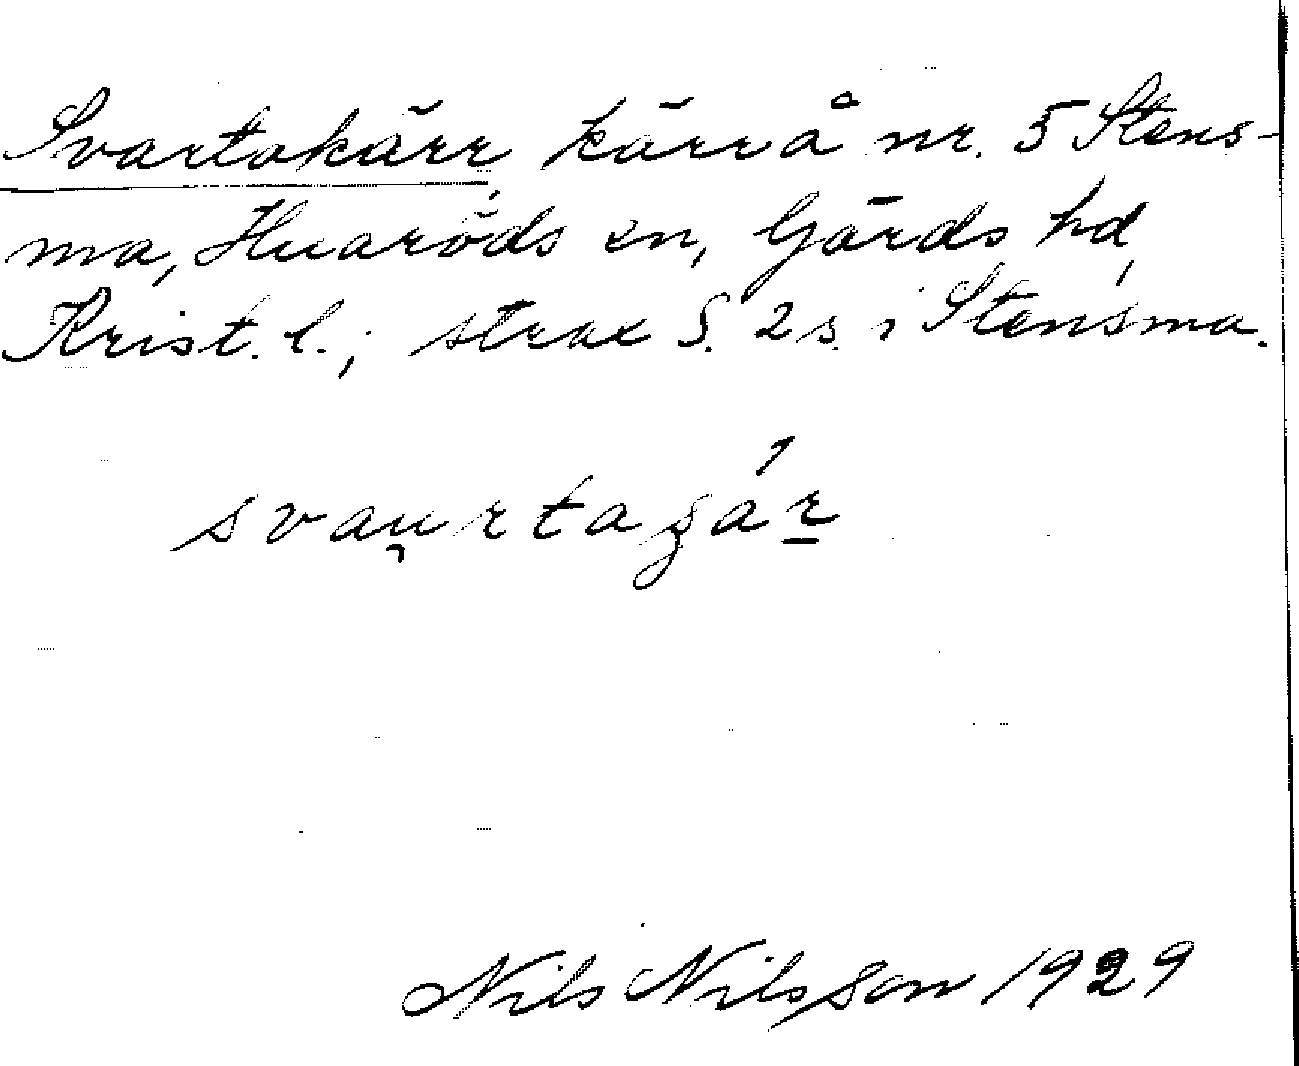 Svartakärr, kärr å nr. 5 Stens-
ma, Huaröds sn, Gärds hd,
Krist. l.; strax S. 2 s. i Stensma.
svau̯rtagä́r̲
Nils Nilsson 1929